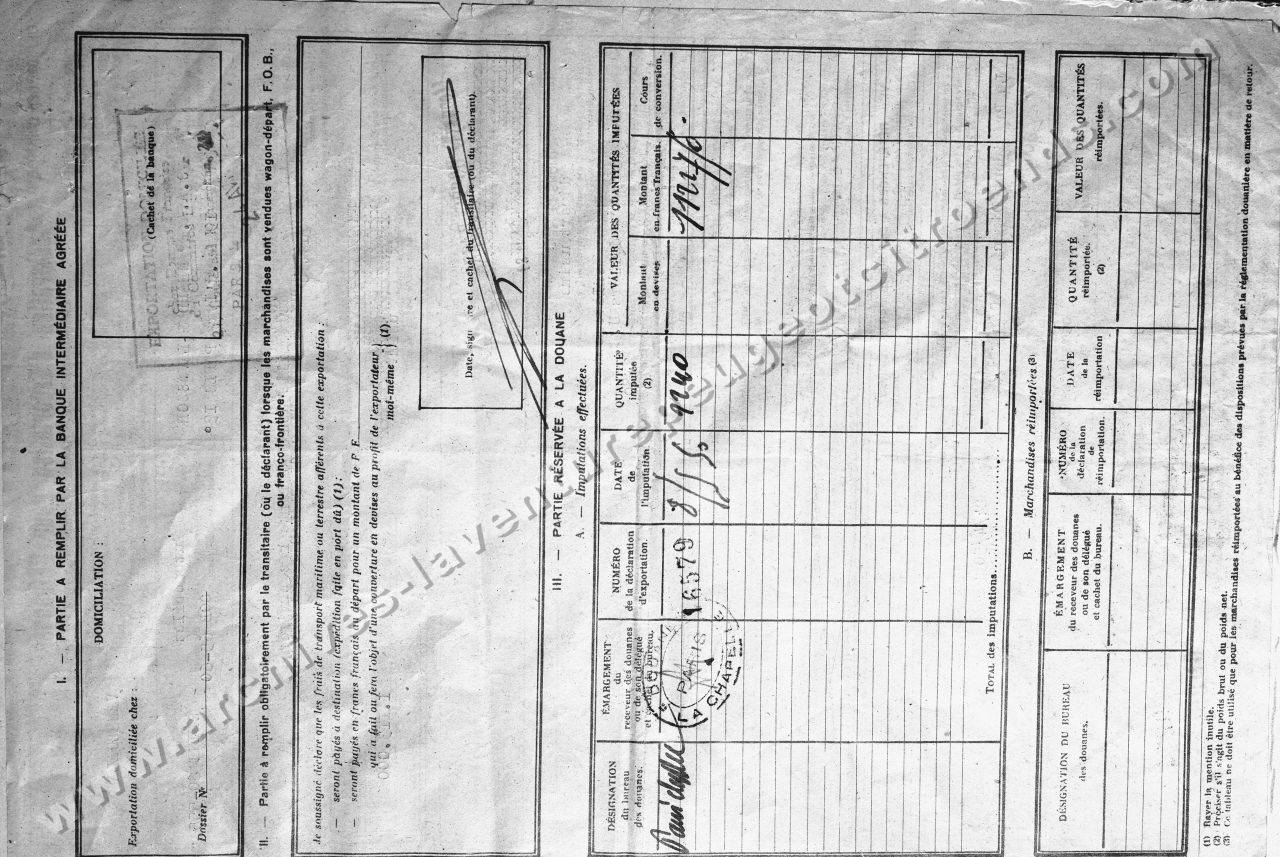 I. — PARTIE A REMPLIR PAR LA BANQUE INTERMÉDIAIRE AGRÉÉE
DOMICILIATION :
Exportation domiciliée chez :
Dossier №
(Cachet de la banque)
EXPORTATION
PARIS
II. — Partie à remplir obligatoirement par le transitaire (ou le déclarant) lorsque les marchandises sont vendues wagon-départ, F.O.B.,
ou franco-frontière.
Je soussigné déclare que les frais de transport maritime ou terrestre afférents à cette exportation :
— seront payés à destination (expédition faite en port dû) (1) :
— seront payés en francs français au départ pour un montant de F F
qui a fait ou fera l'objet d'une couverture en devises au profit de l'exportateur } (1).
moi-même
Date, sign re et cachet du transitaire (ou du déclarant).
III. — PARTIE RÉSERVÉE A LA DOUANE
A. — Imputations effectuées.
DÉSIGNATION
du bureau
des douanes.
ÉMARGEMENT
du
receveur des douanes
ou de son délégué
et cachet du bureau.
NUMÉRO
de la déclaration
d'exportation.
DATE
de
l'imputation
QUANTITÉ
imputée
(2)
VALEUR DES QUANTITÉS IMPUTÉES
Montant
en devises
Montant
en francs français.
Cours
de conversion.
PARIS
LA CHAPELLE
16579
9240
TOTAL des imputations
B. — Marchandises réimportées (3)
DÉSIGNATION DU BUREAU
des douanes.
ÉMARGEMENT
du receveur des douanes
ou de son délégué
et cachet du bureau.
NUMÉRO
de la
déclaration
de
réimportation.
DATE
de la
réimportation
QUANTITÉ
réimportée.
(2)
VALEUR DES QUANTITÉS
réimportées.
(1) Rayer la mention inutile.
(2) Préciser s'il s'agit du poids brut ou du poids net.
(3) Ce tableau ne doit être utilisé que pour les marchandises réimportées au bénéfice des dispositions prévues par la réglementation douanière en matière de retour.